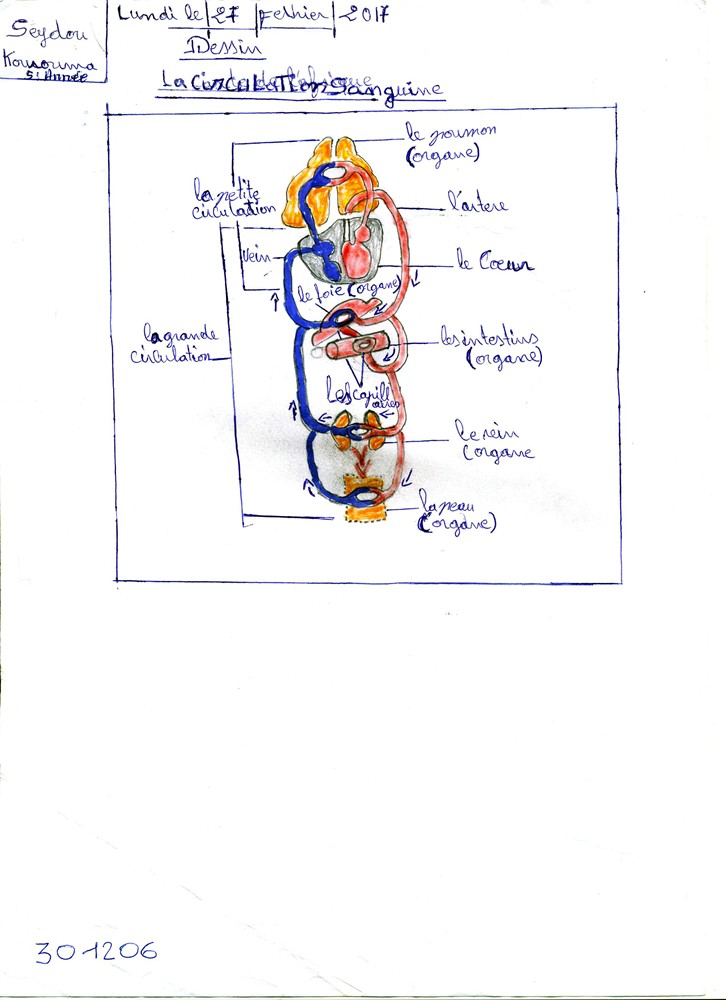 Seydou
Kourouma
5e Année
Lundi le 27 Fevrier 2017
Dessin
La circulation Sanguine
le poumon
(organe)
la petite
circulation
l'artere
vein
le Coeur
le foie (organe)
la grande
circulation
les intestins
(organe)
Les capill
aires
le rein
(organe
la peau
(organe)
301206